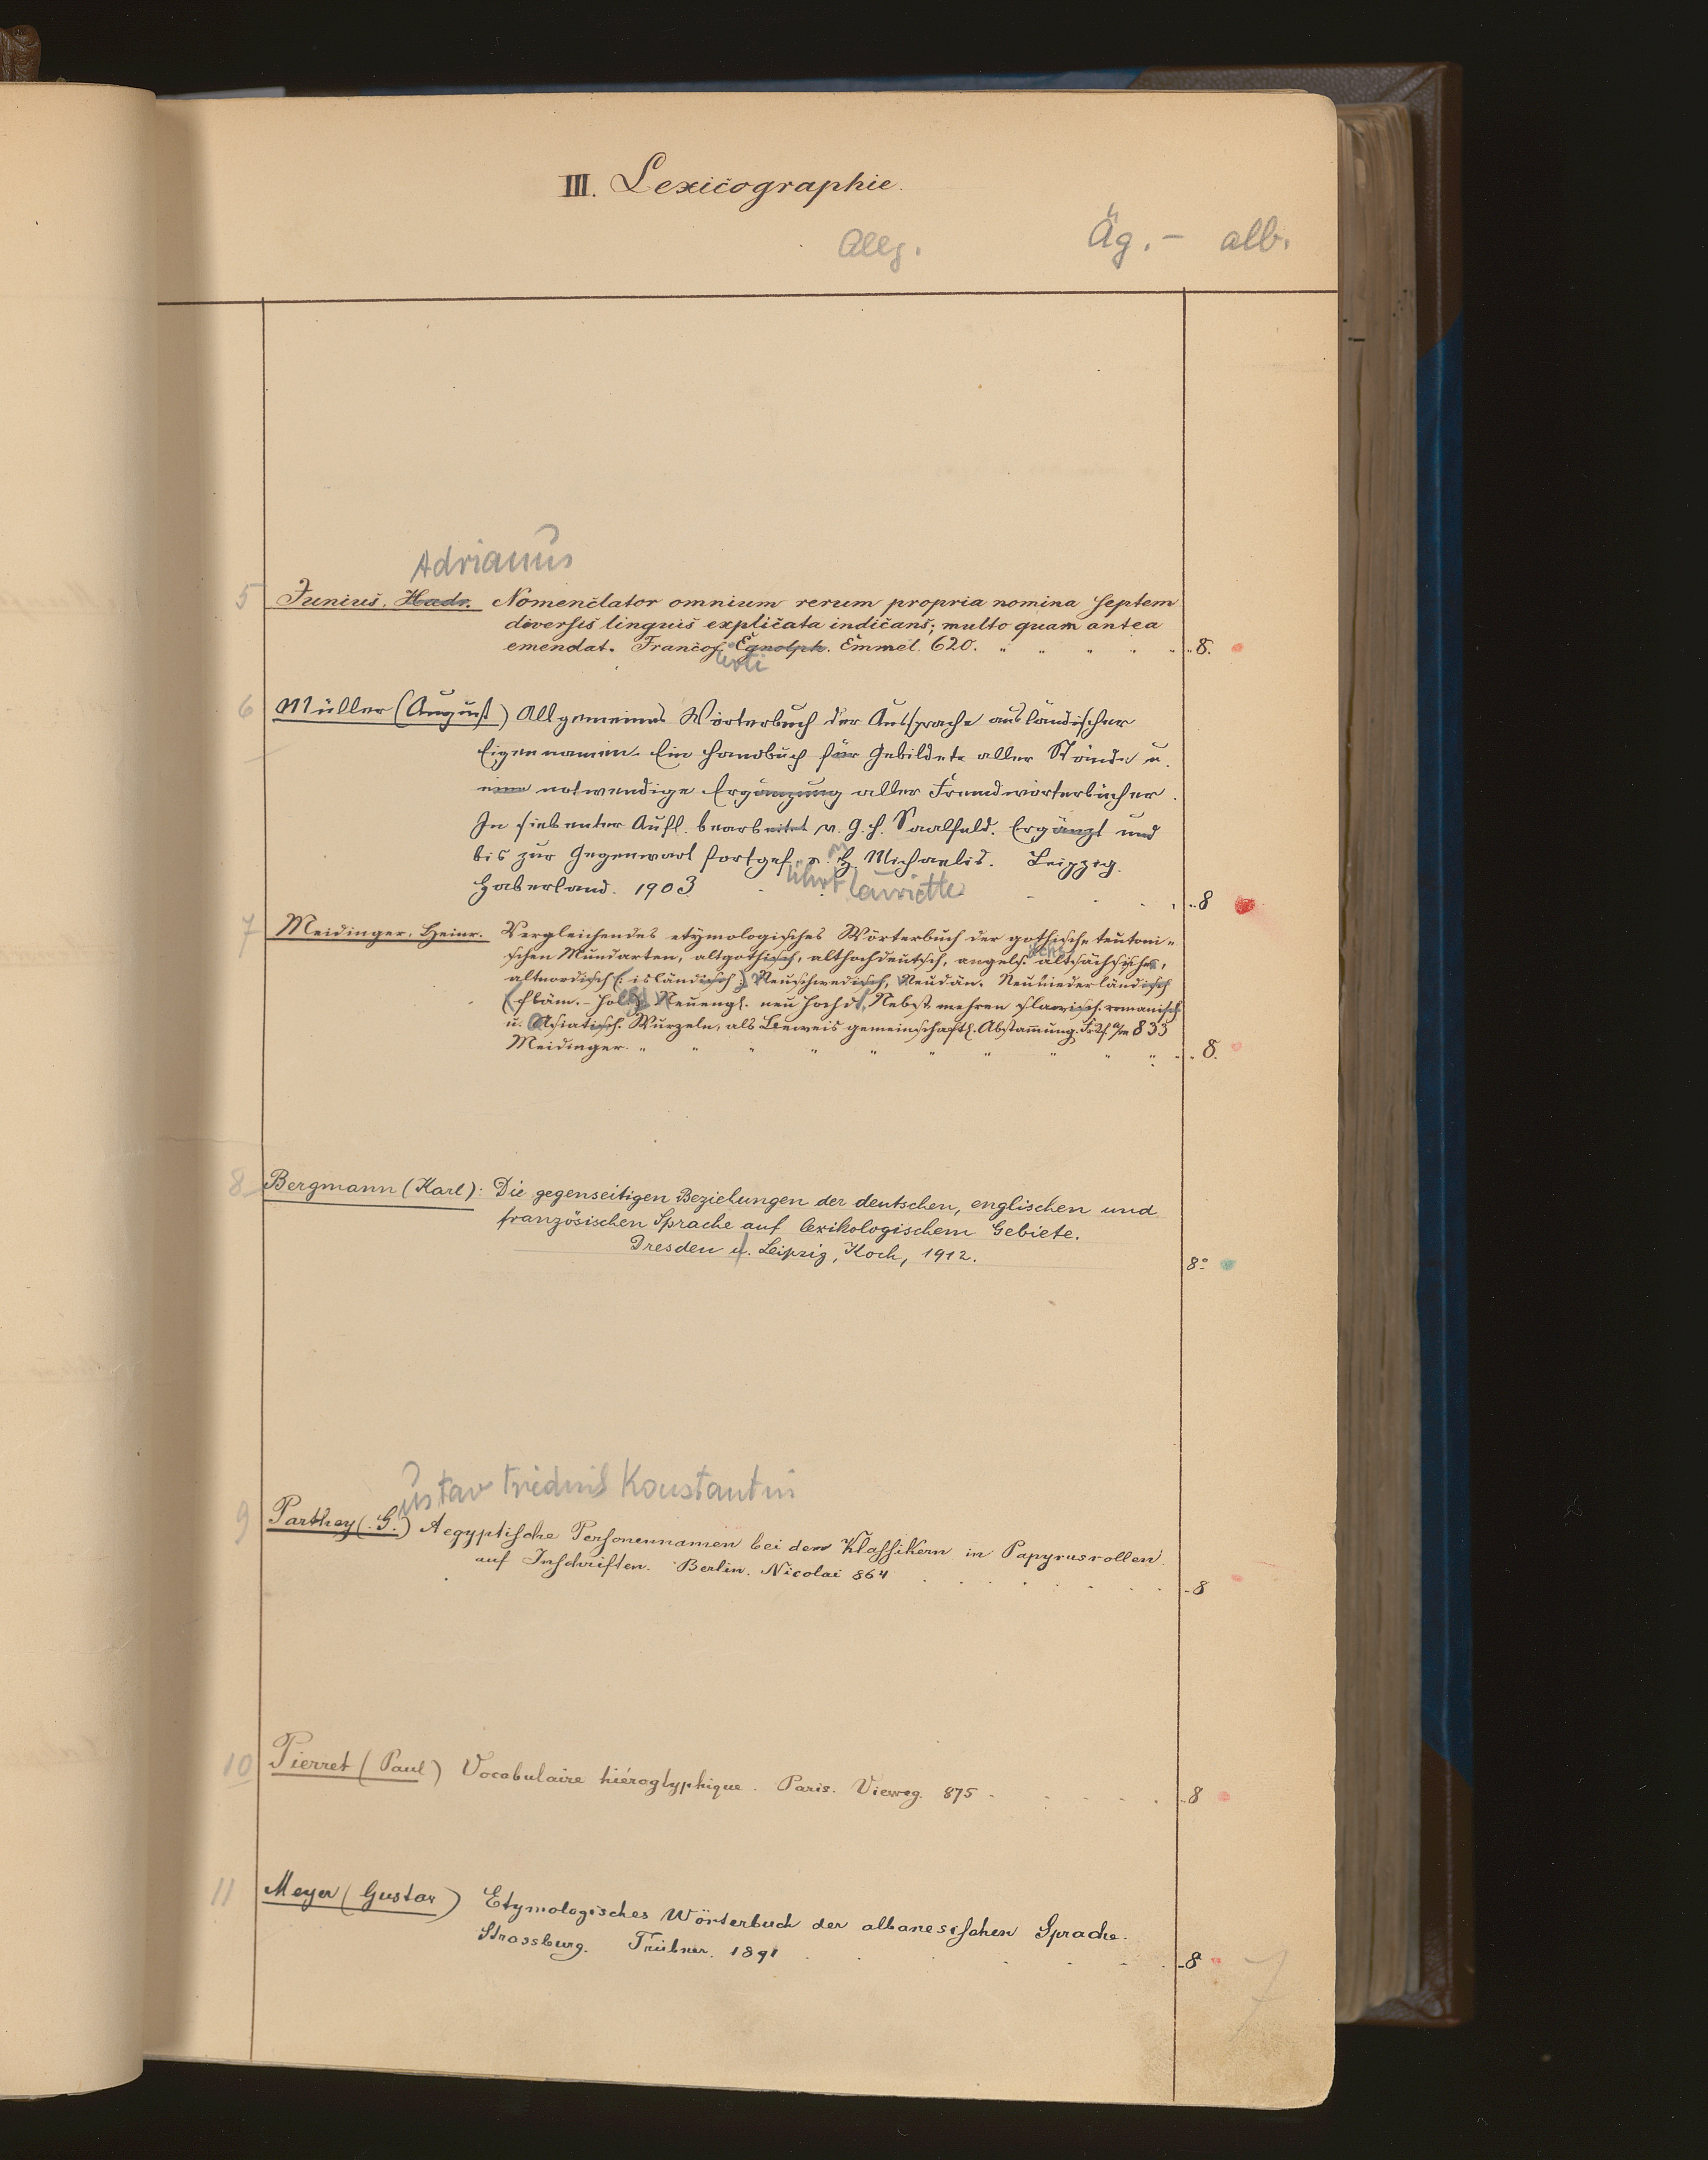 III. Lexicographie.
Allg. Äg. – alb.
Adrianus
5 Junius, Hadr. Nomenclator omnium rerum propria nomina septem
diversis linguis explicata indicans; multo quam antea
emendat. Francof. Egnolph. Emmel. 620. " " " " " 8.
6 Müller (August) Allgemeines Wörterbuch der Aussprache ausländischer
Eigennamen. Ein Handbuch für Gebildete aller Stände u.
eine notwendige Ergänzung aller Fremdwörterbücher.
In siebenter Aufl. bearbeitet v. G. H. Saalfeld. Ergänzt und
bis zur Gegenwart fortgef. v. H. Michaelis. Leipzig.
führt Henriette
Haberland. 1903 8
7 Meidinger, Heinr. Vergleichendes etymologisches Wörterbuch der gothisch-teutoni-
schen Mundarten, altgothisch, althochdeutsch, angels. altsächsisches,
altnordisch (: isländisch :) Neuschwedisch, Neudän. Neuniederländisch
(fläm.-holl.) Neuengl. neuhochd., Nebst mehren slawisch. romanisch
u. Asiatisch. Wurzeln, als Beweis gemeinschaftl. Abstammung. Frkf a/m 833
Meidinger. " " " " " " " " " 8.
8 Bergmann (Karl): Die gegenseitigen Beziehungen der deutschen, englischen und
französischen Sprache auf lexikologischem Gebiete.
Dresden u. Leipzig, Koch, 1912. 8°
ustav Friedrich Konstantin
9 Parthey (G.) Aegyptische Personennamen bei den Klassikern in Papyrusrollen
auf Inschriften. Berlin. Nicolai 864 8
10 Pierret (Paul) Vocabulaire hiéroglyphique. Paris. Vieweg. 875 8
11 Meyer (Gustav) Etymologisches Wörterbuch der albanesischen Sprache.
Strassburg. Trübner. 1891 8
7